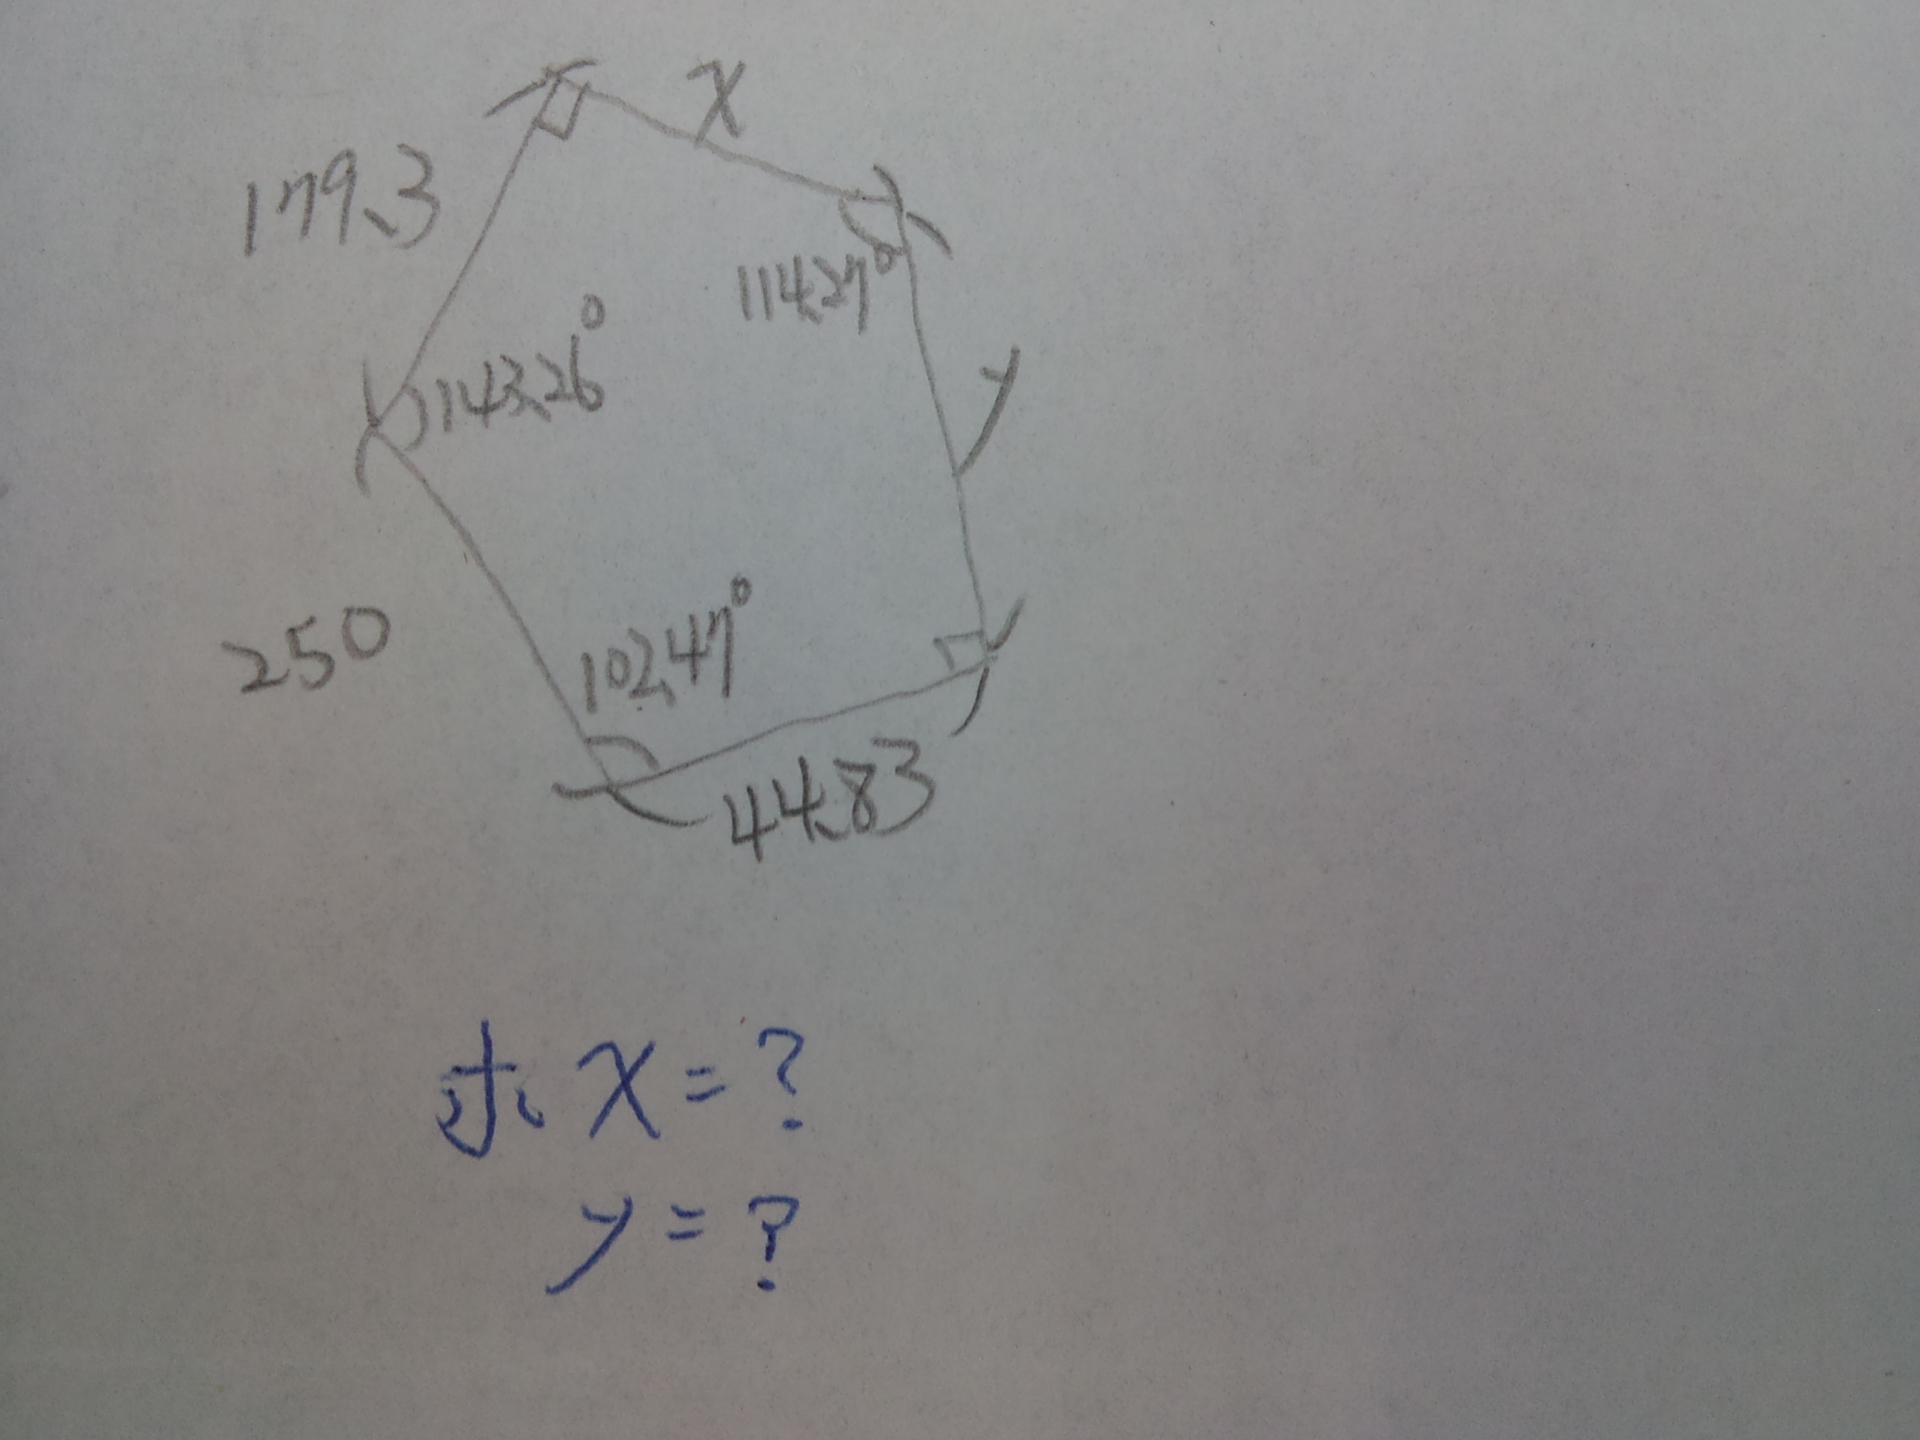 x
179.3
114.27°
143.26°
y
250
102.47°
44.83
求 x = ?
y = ?